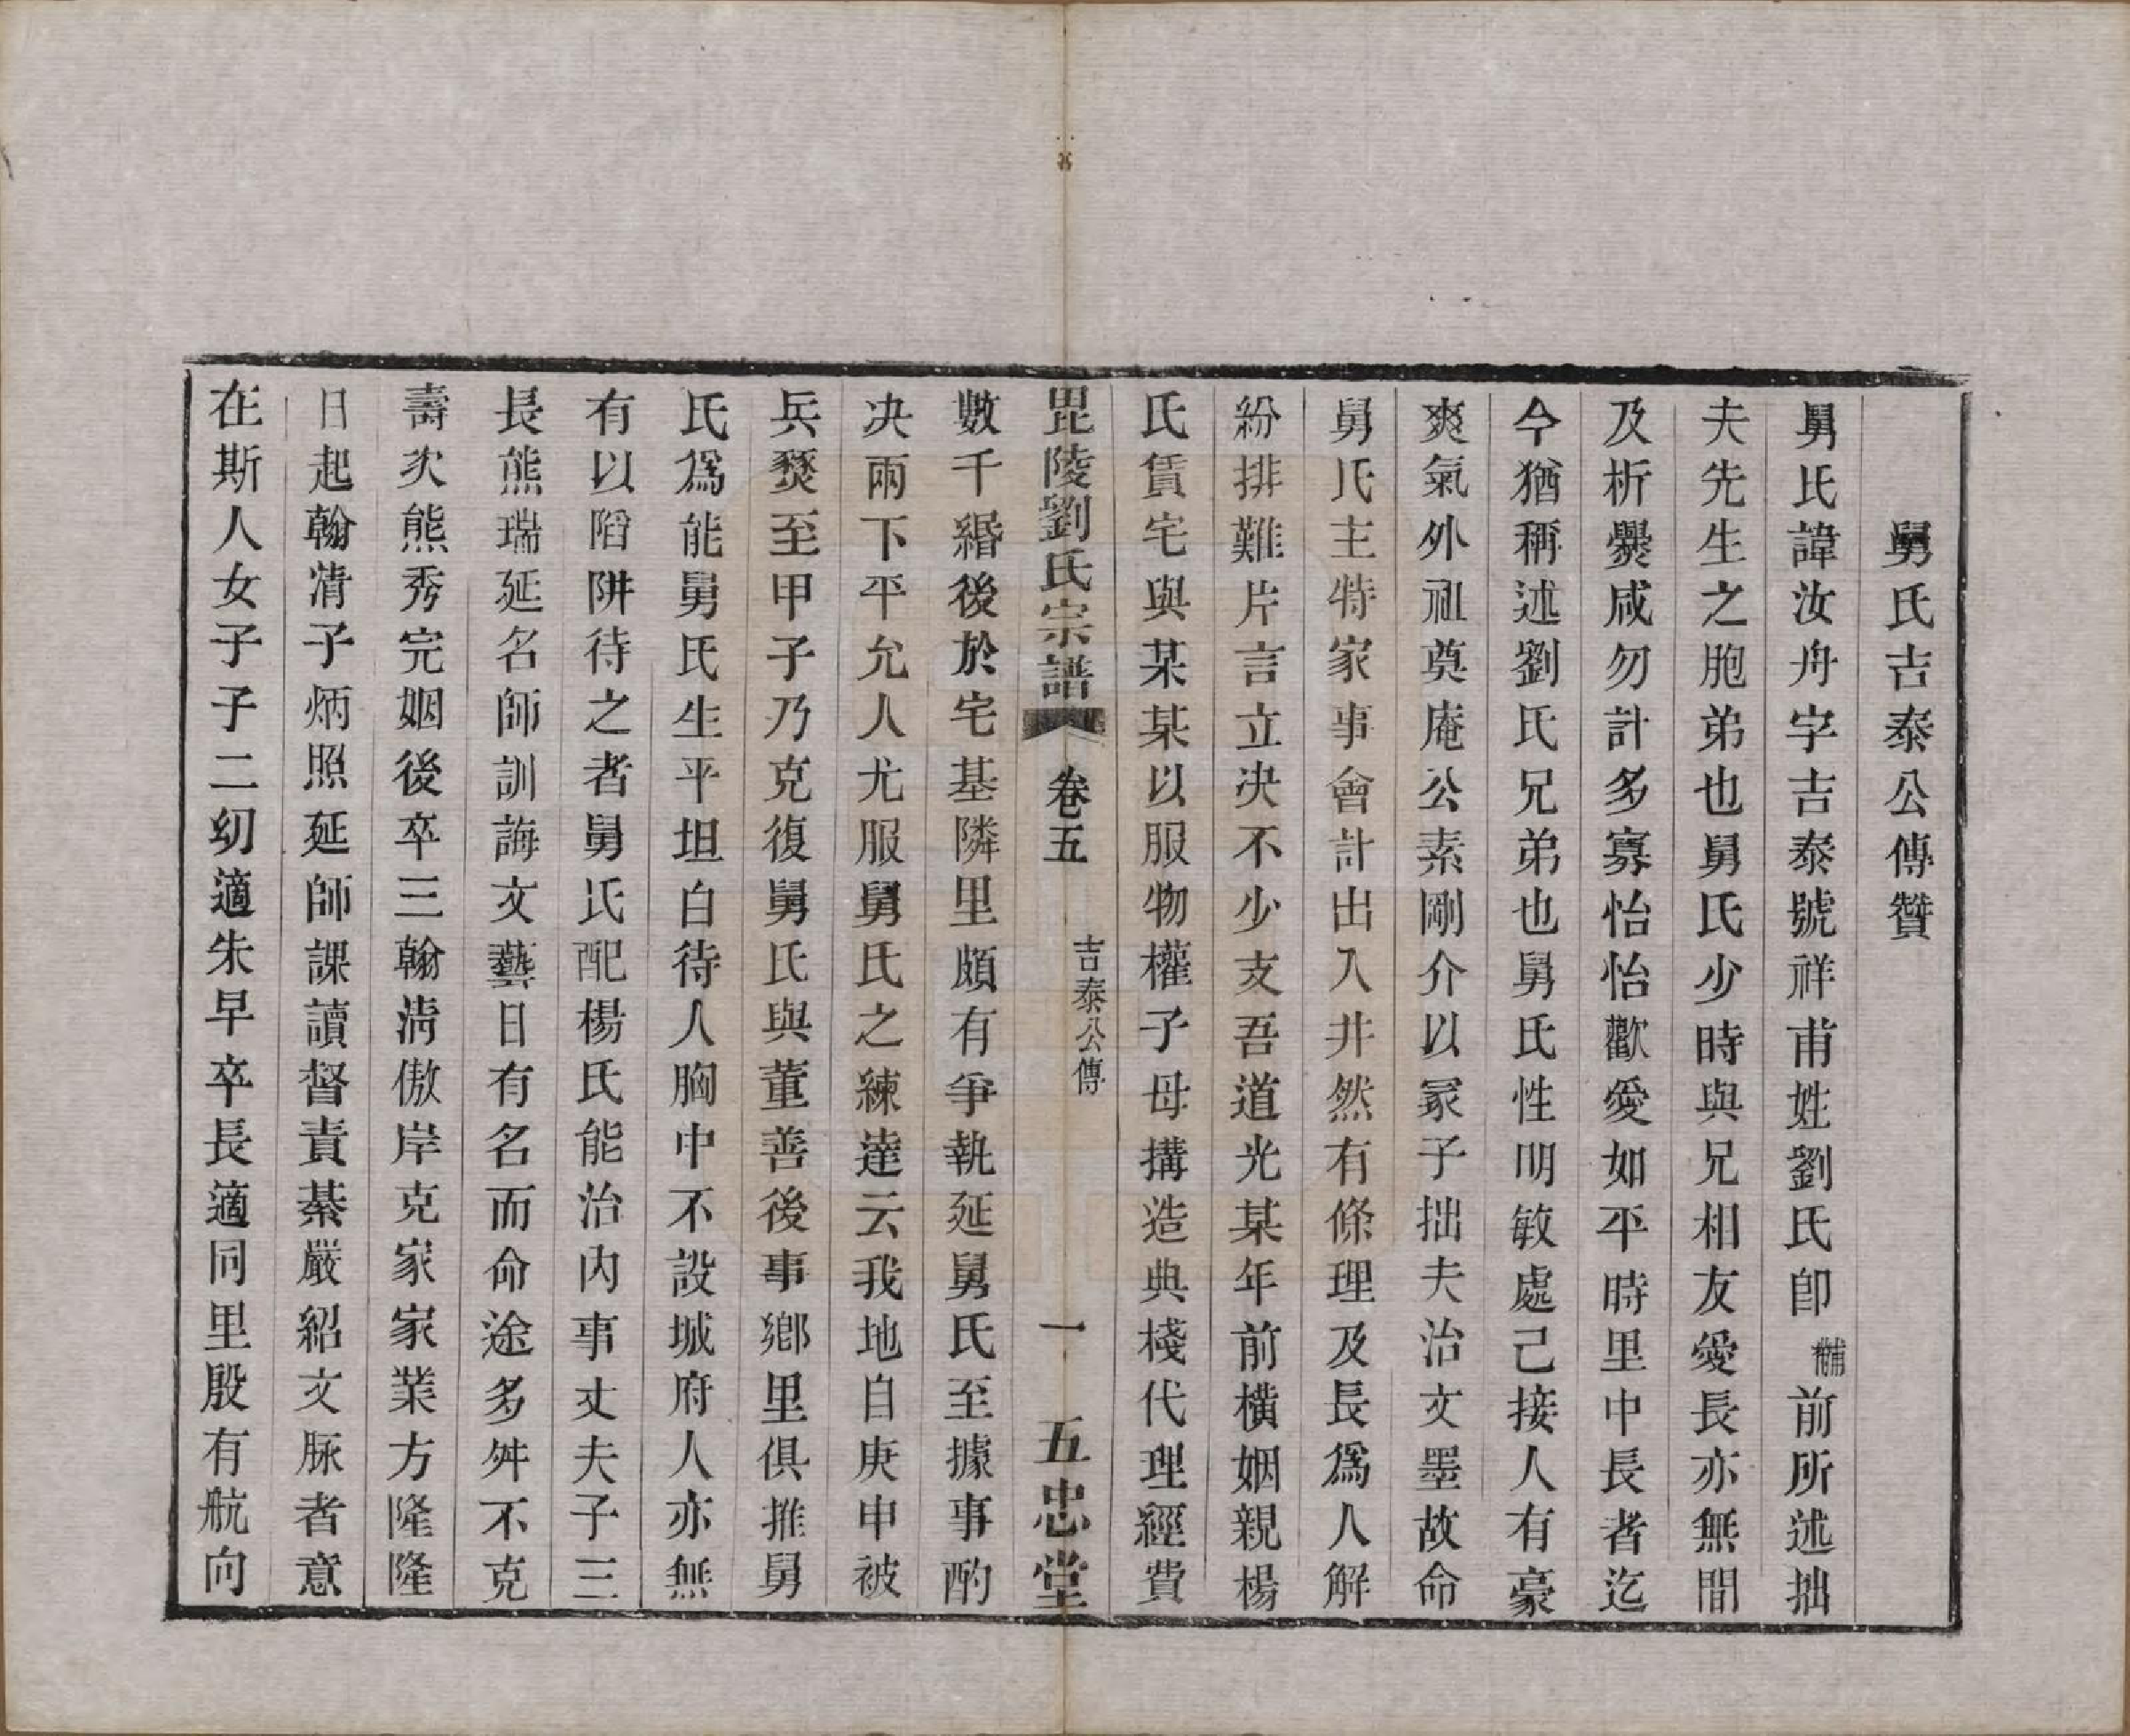 舅氏吉泰公傳贊
舅氏諱汝舟字吉泰號祥甫姓劉氏卽黼前所述拙
夫先生之胞弟也舅氏少時與兄相友愛長亦無間
及析爨咸勿計多寡怡怡歡愛如平時里中長者迄
今猶稱述劉氏兄弟也舅氏性明敏處己接人有豪
爽氣外祖奠庵公素剛介以冢子拙夫治文墨故命
舅氏主特家事會計出入井然有條理及長爲人解
紛排難片言立決不少支吾道光某年前橫姻親楊
氏賃宅與某某以服物權子母搆造典棧代理經費
毘陵劉氏宗譜 卷五 吉泰公傳 一 五忠堂
數千緡後於宅基隣里頗有爭執延舅氏至據事酌
决兩下平允人尤服舅氏之練達云我地自庚申被
兵燹至甲子乃克復舅氏與董善後事鄉里俱推舅
氏爲能舅氏生平坦白待人胸中不設城府人亦無
有以陷阱待之者舅氏配楊氏能治内事丈夫子三
長熊瑞延名師訓誨文藝日有名而命途多舛不克
壽次熊秀完姻後卒三翰淸傲岸克家家業方隆隆
日起翰淸子炳照延師課讀督責綦嚴紹文脉者意
在斯人女子子二幼適朱早卒長適同里殷有航向